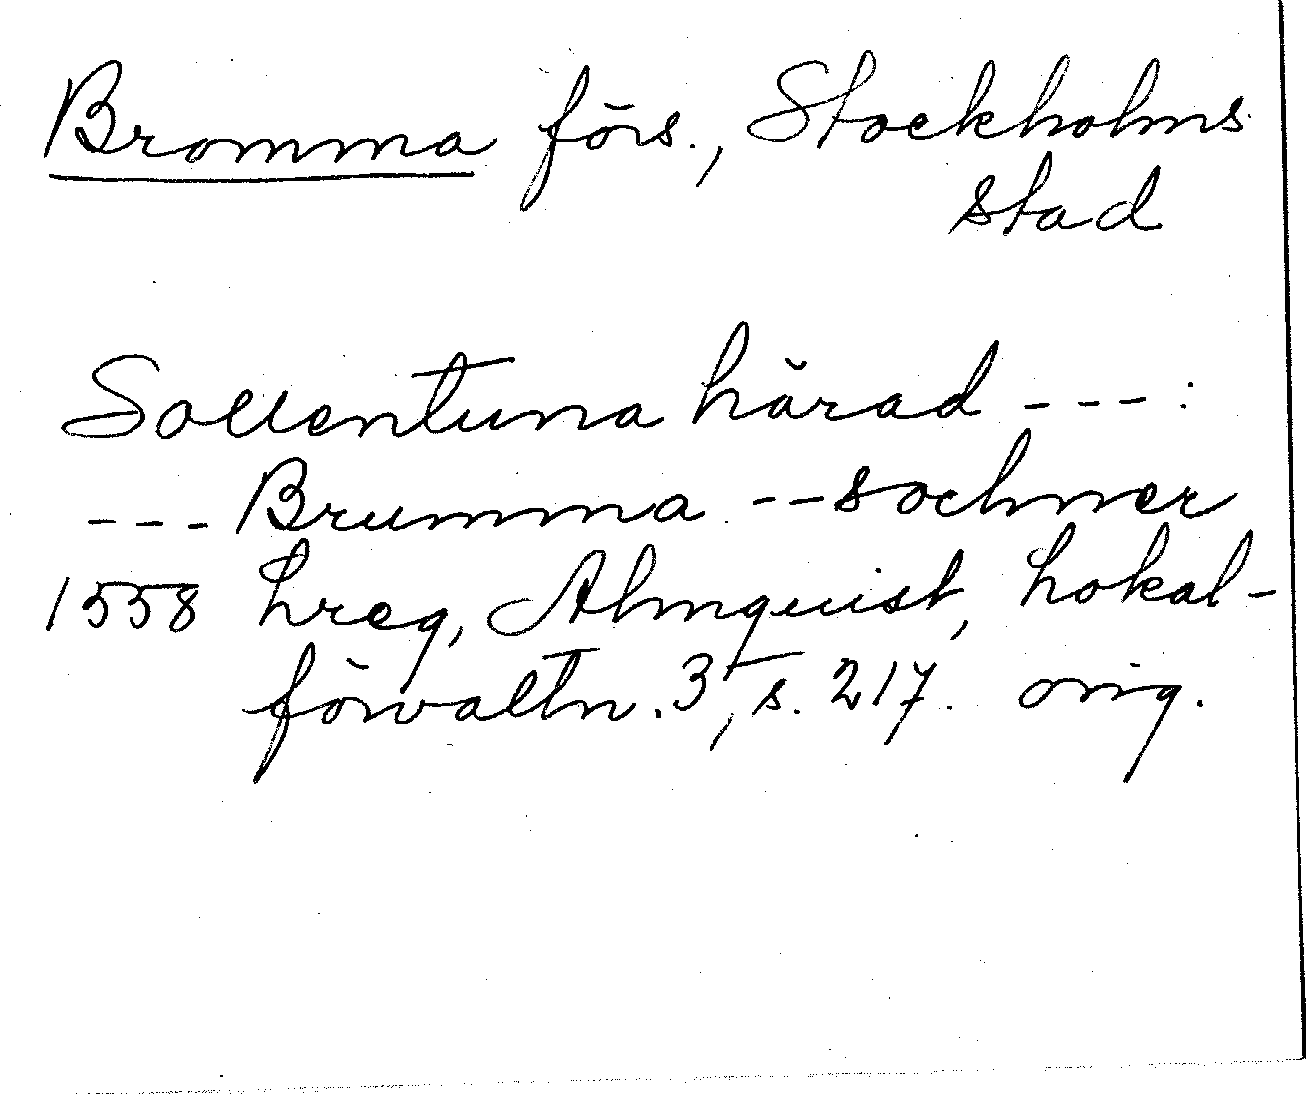 Bromma förs., Stockholms
stad
Sollentuna härad ---:
--- Brumma -- sochner
1558 Lreg, Almquist, Lokal-
förvaltn. 3, s. 217. orig.